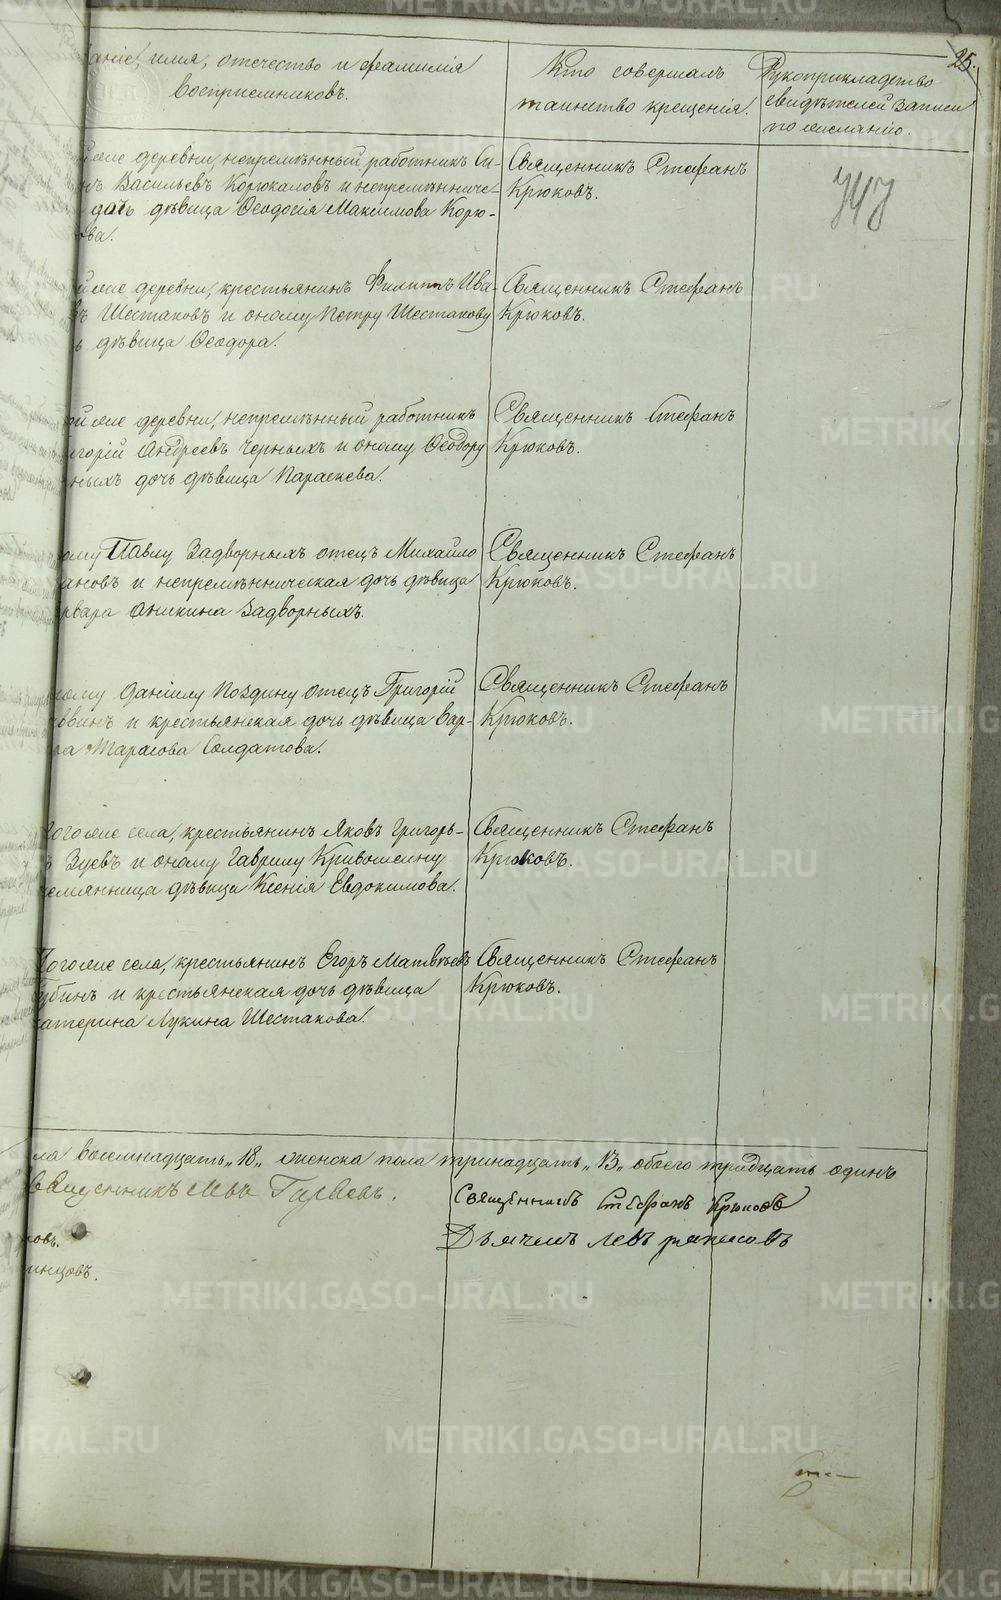 25.
званіе, имя, отечество и фамилія
воспріемниковъ.
Кто совершалъ
таинство крещенія.
Рукоприкладство
свидѣтелей записи
по желанію.
747
той же деревни, непремѣнный работникъ Си-
нъ Васильевъ Корюкаловъ и непремѣнниче-
дочь дѣвица Ѳеодосія Максимова Корю-
ова.
Священникъ Стефанъ
Крюковъ.
той же деревни, крестьянинъ Филиппъ Ива-
въ Шестаковъ и оному Петру Шестакову
дѣвица Ѳеодора.
Священникъ Стефанъ
Крюковъ.
той же деревни, непремѣнный работникъ
игорій Андреевъ Черныхъ и оному Ѳеодору
ныхъ дочь дѣвица Параскева.
Священникъ Стефанъ
Крюковъ.
ому Павлу Задворныхъ отецъ Михайло
ановъ и непремѣнническая дочь дѣвица
рвара Аникина Задворныхъ.
Священникъ Стефанъ
Крюковъ.
ному Даніилу Поздину отецъ Григорій
овинъ и крестьянская дочь дѣвица Вар-
ра Тарасова Солдатова.
Священникъ Стефанъ
Крюковъ.
того же села, крестьянинъ Яковъ Григорь-
ъ Зуевъ и оному Гаврилу Кривошеину
племянница дѣвица Ксенія Евдокимова.
Священникъ Стефанъ
Крюковъ.
того же села, крестьянинъ Егоръ Матвѣевъ
убинъ и крестьянская дочь дѣвица
катерина Лукина Шестакова.
Священникъ Стефанъ
Крюковъ.
ла восемнадцать „18„ женска пола тринадцать „13„ обоего тридцать одинъ
Священникъ Левъ
Священникъ Стефанъ Крюковъ
овъ.
Дьячекъ Левъ
инцовъ.
METRIKI.GASO-URAL.RU